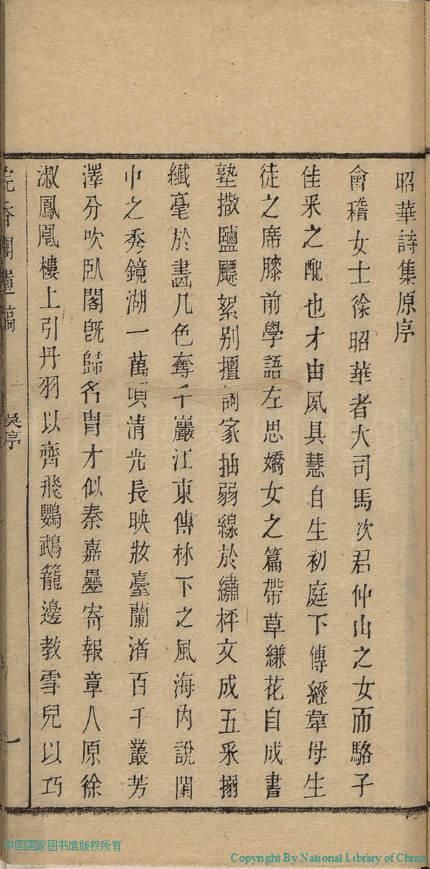 昭華詩集原序
會稽女士徐昭華者大司馬次君仲山之女而駱子
佳采之配也才由夙具慧自生初庭下傳經韋母生
徒之席膝前學語左思嬌女之篇帶草縑花自成書
塾撒鹽颺絮别擅詞家抽弱線於繡枰文成五采搦
纖毫於畵几色奪千巖江東傳林下之風海内說閨
中之秀鏡湖一萬頃清光長映妝臺蘭渚百千叢芳
澤分吹卧閣旣歸名胄才似秦嘉疊寄報章人原徐
淑鳳凰樓上引丹羽以齊飛鸚鵡籠邊教雪兒以巧
吳序
一
中国国家图书馆版权所有
Copyright By National Library of China